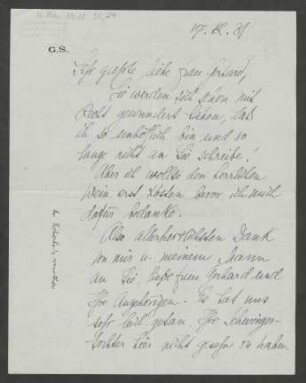 19. 12. 31
G.S.
Sehr geehrte, liebe Frau Gerhard,
Sie werden sich schon mit
Recht gewundert haben, daß
ich so unhöflich bin und so
lange nicht an Sie schreibe!
Aber ich wollte den herrlichen
Wein erst kosten bevor ich mich
dafür bedanke.
Also allerherzlichsten Dank
von mir u. meinem Mann
an Sie, liebe Frau Gerhard und
Ihre Angehörigen. Es hat uns
sehr leid getan, Ihre Schwieger-
tochter hier nicht gesehen zu haben.